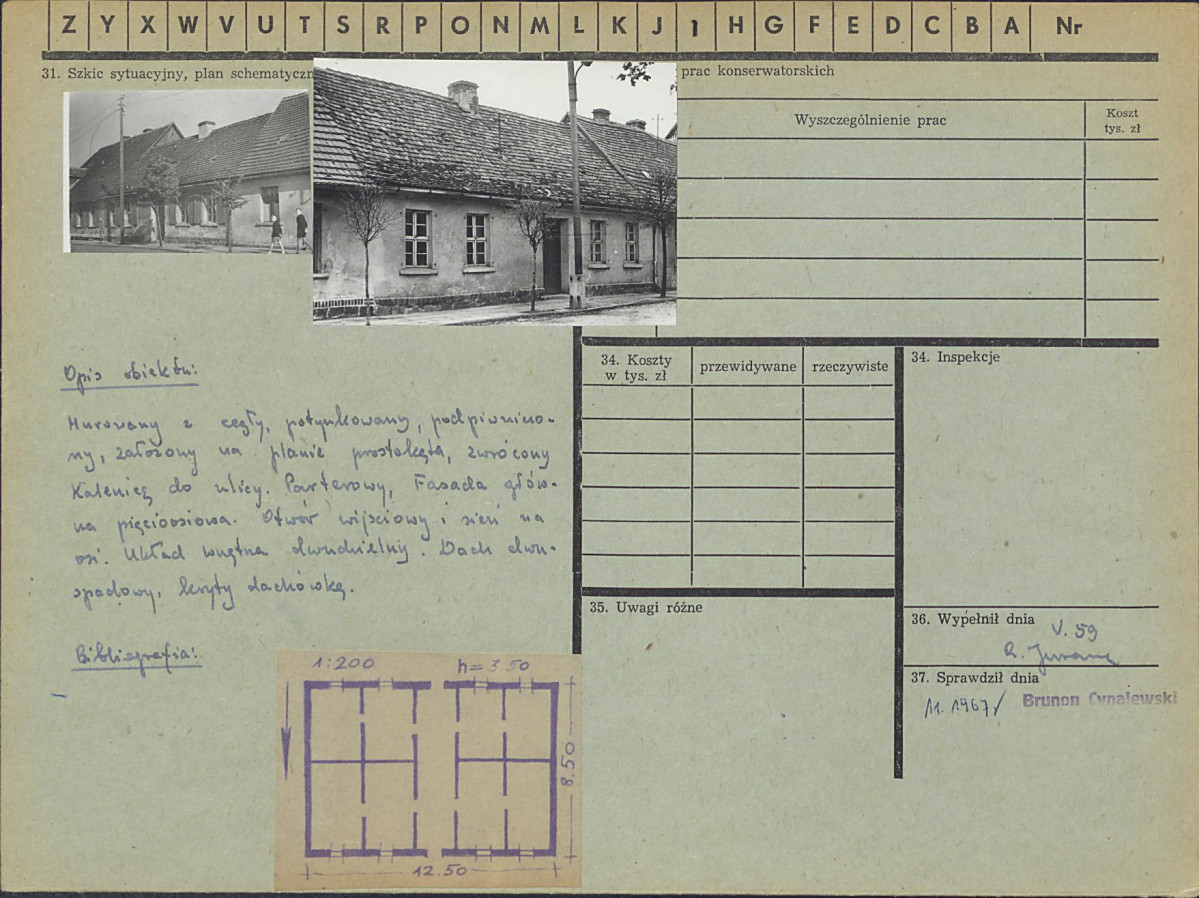 Z Y X W V U T S R P O N M L K J I H G F E D C B A Nr
31. Szkic sytuacyjny, plan schematyczn
prac konserwatorskich
Wyszczególnienie prac
Koszt
tys. zł
Opis obiektu:
Murowany z cegły, potynkowany, podpiwniczo-
ny, założony na planie prostokąta, zwrócony
Kalenicą do ulicy. Parterowy, Fasada głów-
na pięcioosiowa. Otwór wijściowy i sień na
osi. Układ wnętrza dwudzielny. Dach dwu-
spadowy, kryty dachówką.
Bibliografia:
–
34. Koszty
w tys. zł
przewidywane
rzeczywiste
34. Inspekcje
35. Uwagi różne
36. Wypełnił dnia
V. 59
37. Sprawdził dnia
11. 1967
Brunon Cynalewski
1:200
h = 3.50
8.50
12.50